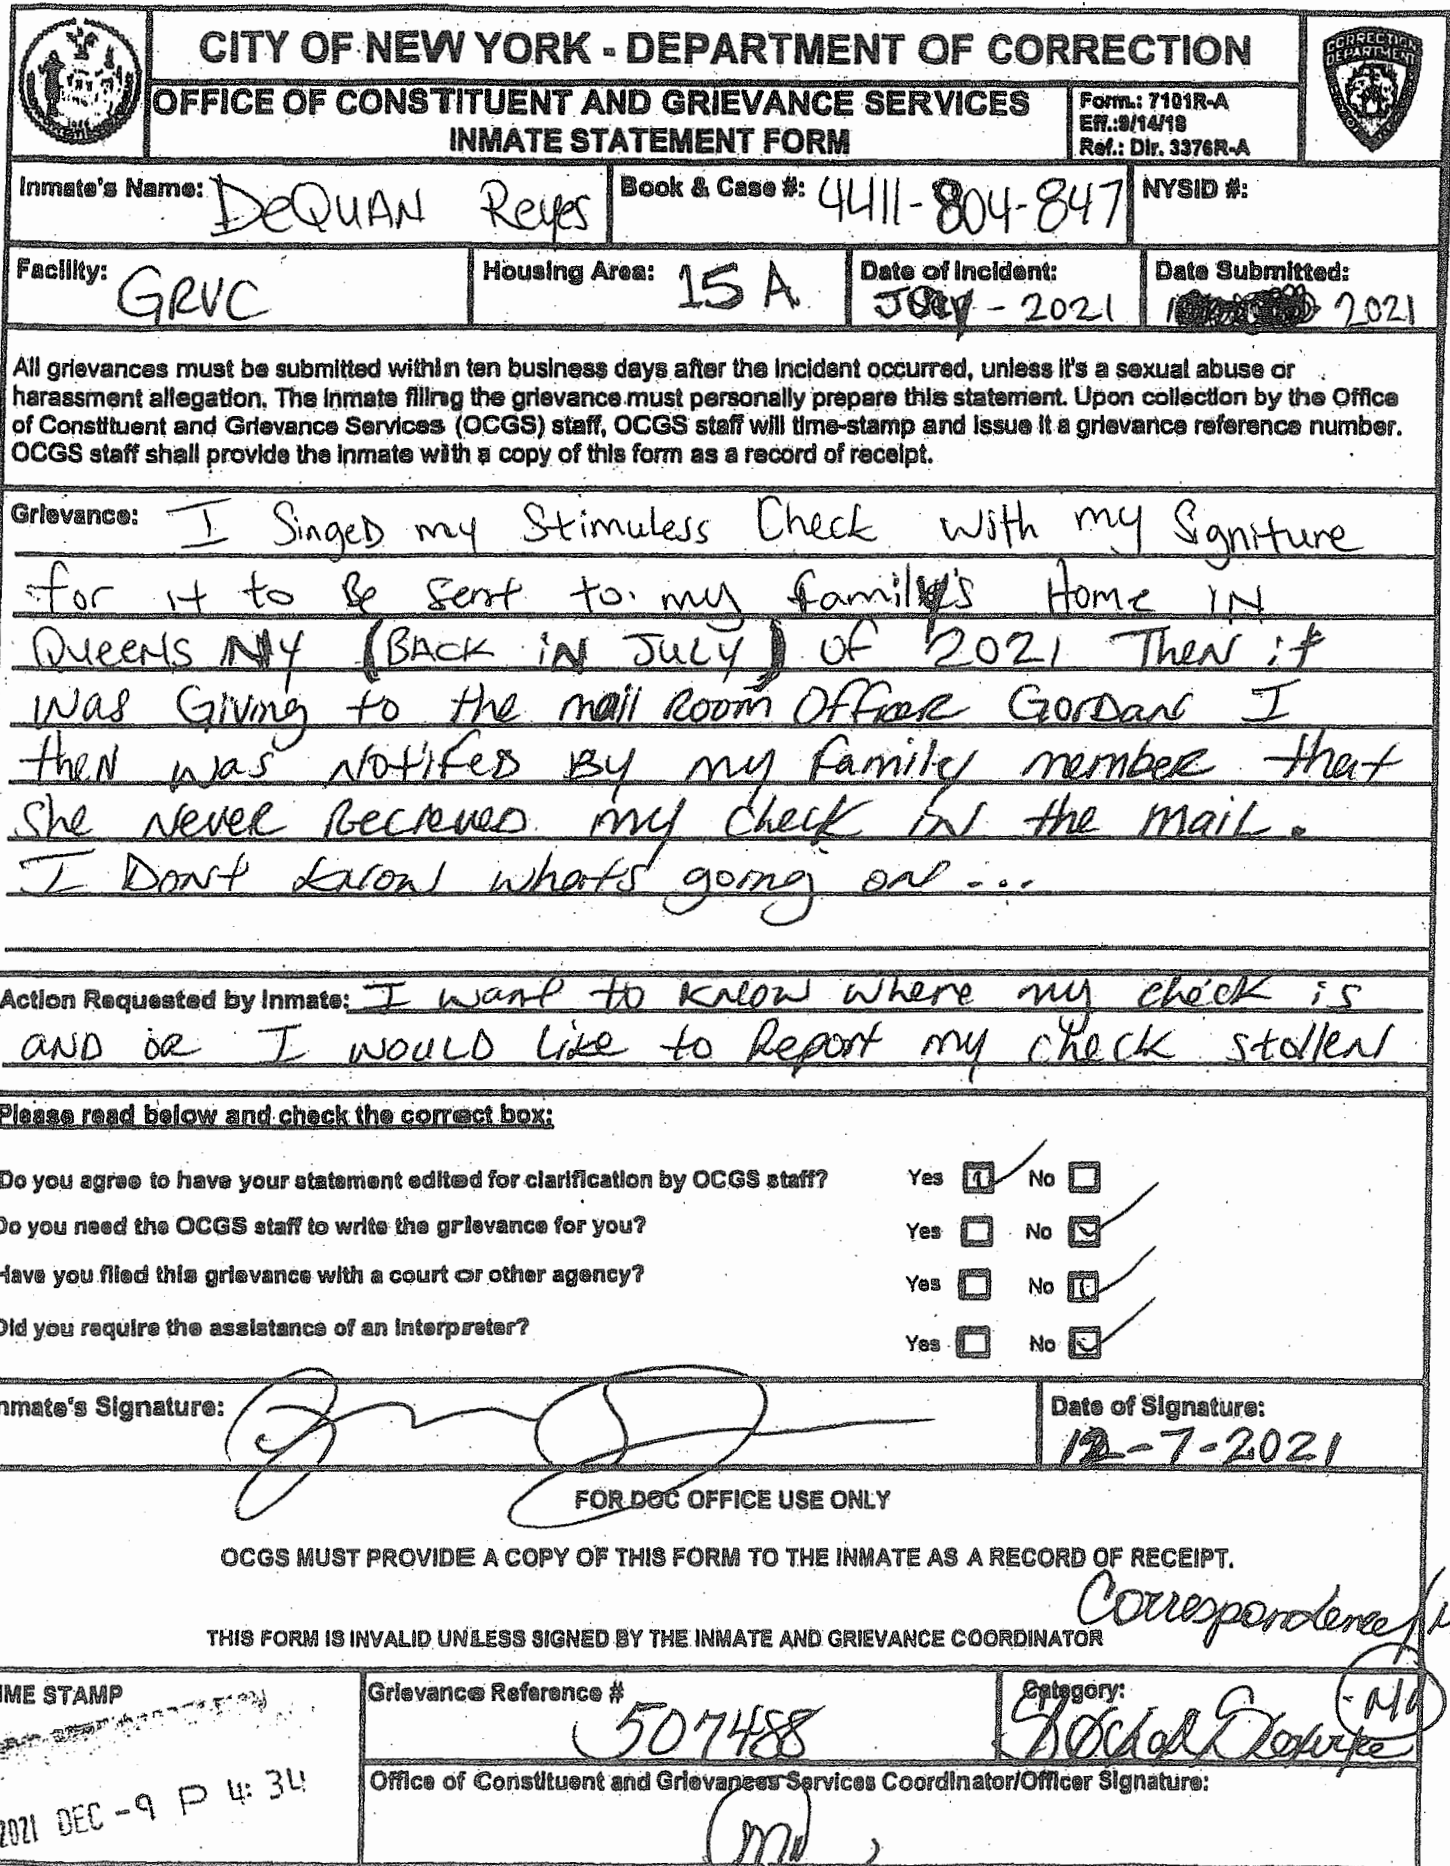 CITY OF NEW YORK - DEPARTMENT OF CORRECTION
OFFICE OF CONSTITUENT AND GRIEVANCE SERVICES
INMATE STATEMENT FORM
Form.: 7101R-A
Eff.:9/14/18
Ref.: Dir. 3376R-A
CORRECTION
DEPARTMENT
Inmate's Name: DeQUAN Reyes
Book & Case #: 4411-804-847
NYSID #:
Facility: GRVC
Housing Area: 15 A
Date of Incident: July - 2021
Date Submitted: 2021
All grievances must be submitted within ten business days after the incident occurred, unless it's a sexual abuse or
harassment allegation. The inmate filing the grievance must personally prepare this statement. Upon collection by the Office
of Constituent and Grievance Services (OCGS) staff, OCGS staff will time-stamp and issue it a grievance reference number.
OCGS staff shall provide the inmate with a copy of this form as a record of receipt.
Grievance: I Singed my Stimuless Check with my Signiture
for it to Be Sent to my family's Home IN
Queens NY (BACK iN JULY) of 2021 Then it
was Giving to the mail Room Officer Gordan I
then was Notifed By my family member that
she Never Recieved my check in the mail.
I Dont know whats going on ...
Action Requested by Inmate: I want to know where my check is
AND or I would like to Report my check stollen
Please read below and check the correct box:
Do you agree to have your statement edited for clarification by OCGS staff? Yes No
Do you need the OCGS staff to write the grievance for you? Yes No
Have you filed this grievance with a court or other agency? Yes No
Did you require the assistance of an interpreter? Yes No
nmate's Signature:
Date of Signature:
12-7-2021
FOR DOC OFFICE USE ONLY
OCGS MUST PROVIDE A COPY OF THIS FORM TO THE INMATE AS A RECORD OF RECEIPT.
Correspondence/
THIS FORM IS INVALID UNLESS SIGNED BY THE INMATE AND GRIEVANCE COORDINATOR
IME STAMP
2021 DEC -9 P 4: 34
Grievance Reference #
507488
Category:
Office of Constituent and Grievances Services Coordinator/Officer Signature: